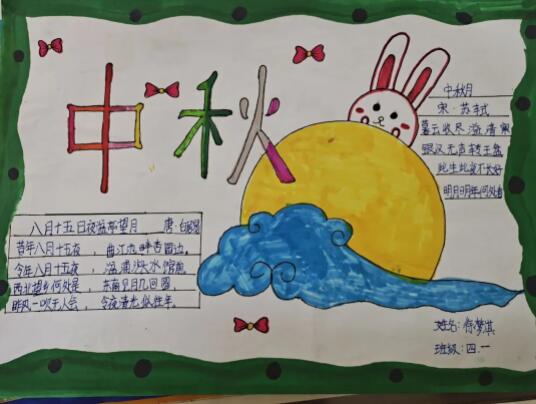 中秋
中秋月
宋·苏轼
暮云收尽溢清寒
银汉无声转玉盘
此生此夜不长好
明月明年何处看
八月十五日夜湓亭望月 唐·白居易
昔年八月十五夜，曲江池畔杏园边。
今年八月十五夜，湓浦沙水馆前。
西北乡何处是，东南见月几回圆。
昨风一吹无人会，今夜清光似往年。
姓名：梦淇
班级：四.一